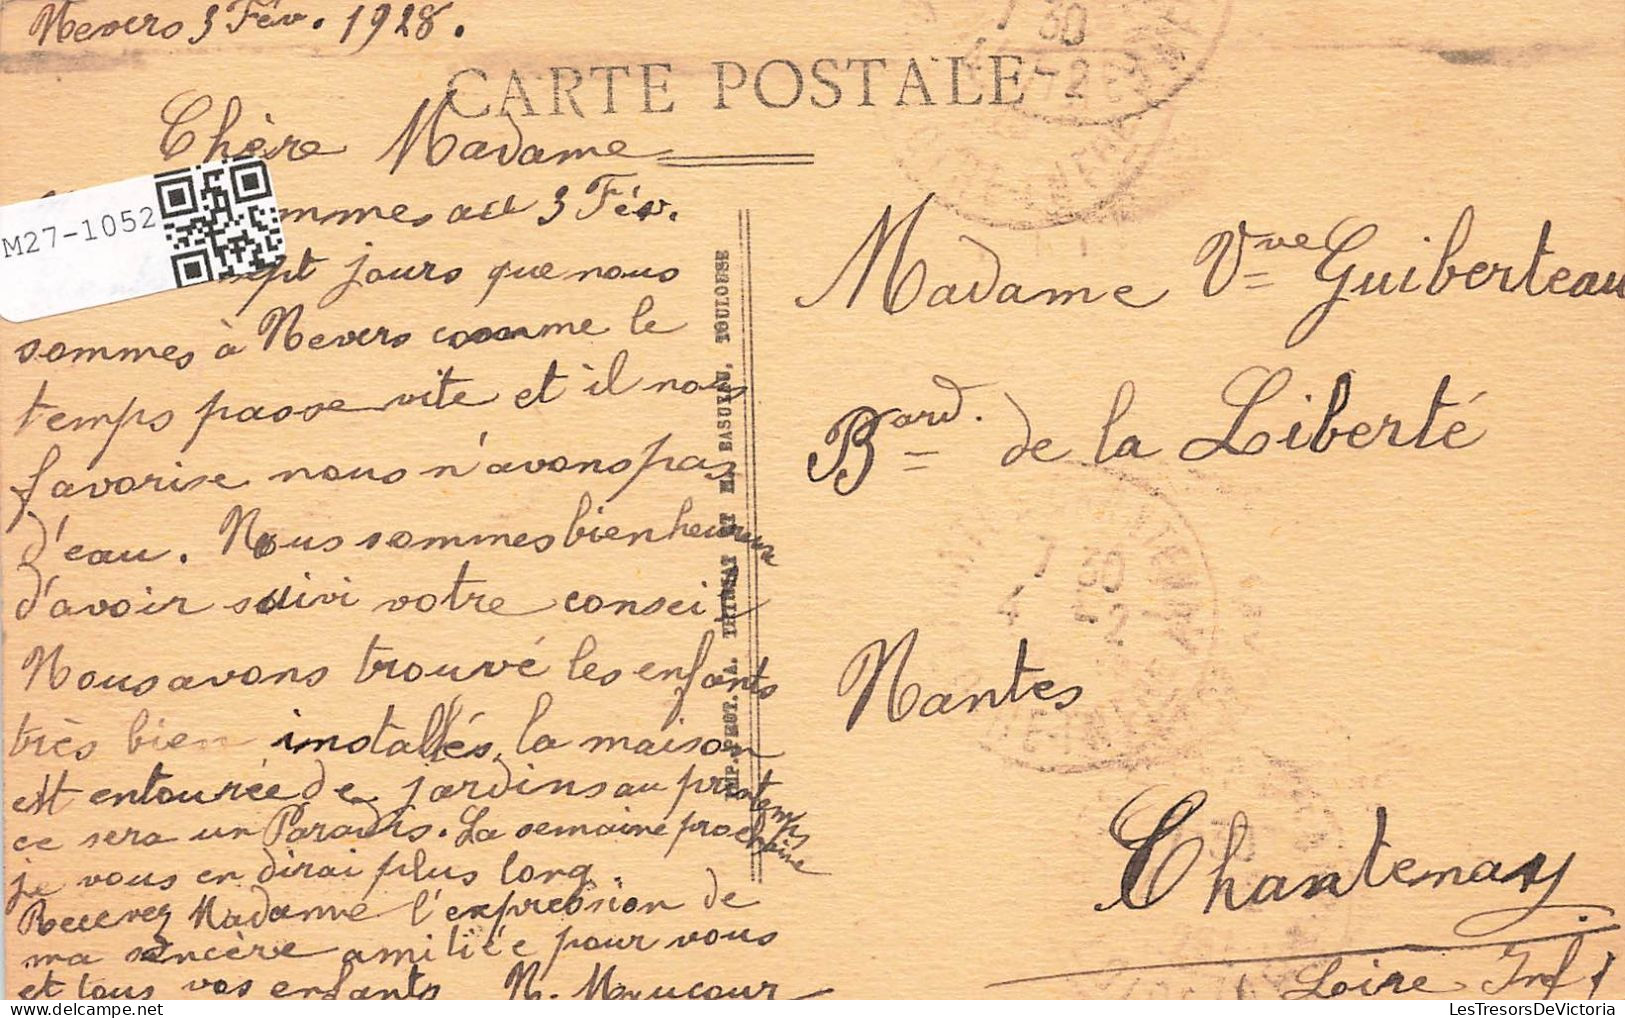 Nevers 3 Fév. 1928.
CARTE POSTALE
Chère Madame
M27-1052
mmes au 3 Fév.
sept jours que nous
sommes à Nevers comme le
temps passe vite et il nous
favorise nous n'avons pas
d'eau. Nous sommes bien heureux
d'avoir suivi votre conseil
Nous avons trouvé les enfants
très bien installés, la maison
est entourée de jardins au printemps
ce sera un Paradis. La semaine prochaine
je vous en dirai plus long.
Recevez Madame l'expression de
ma sincère amitiée pour vous
et tous vos enfants
IMP. PHOT. A. THIRIAT ET M. BASUYAU, TOULOUSE
Madame Vve Guiberteau
Bard. de la Liberté
Nantes
Chantenay
Loire Inf
7 30
4 -2
7 30
4 -2
30
LesTresorsDeVictoria